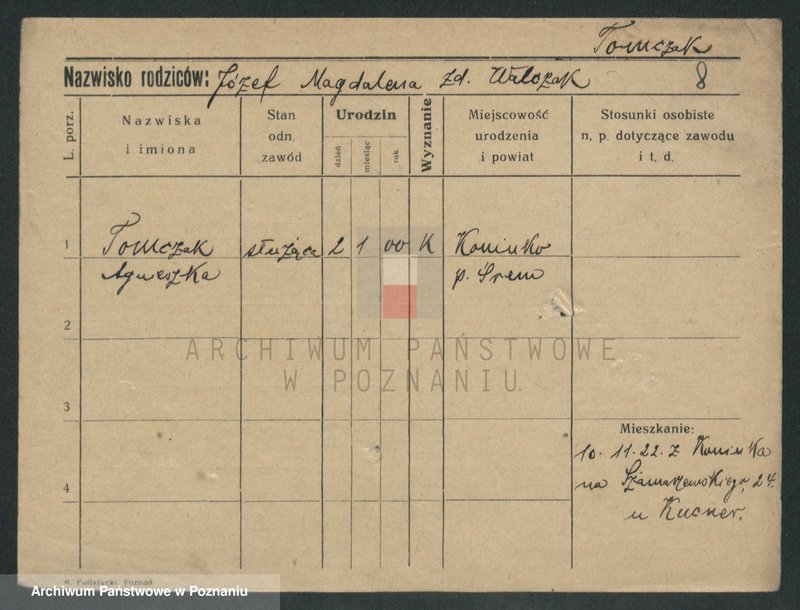 Tomczak
Nazwisko rodziców: Józef Magdalena zd. Walczak 8
L. porz.
Nazwiska
i imiona
Stan
odn.
zawód
Urodzin
dzień
miesiąc
rok
Wyznanie
Miejscowość
urodzenia
i powiat
Stosunki osobiste
n. p. dotyczące zawodu
i t. d.
1 Tomczak służąca 2 1 00 K Koninko
Agnieszka p. Śrem
2
ARCHIWUM PAŃSTWOWE
W POZNANIU
3
Mieszkanie:
10. 11. 22. z Koninka
na Szamarzewskiego 24.
4
u Kucner.
M. Putiatycki, Poznań
Archiwum Państwowe w Poznaniu